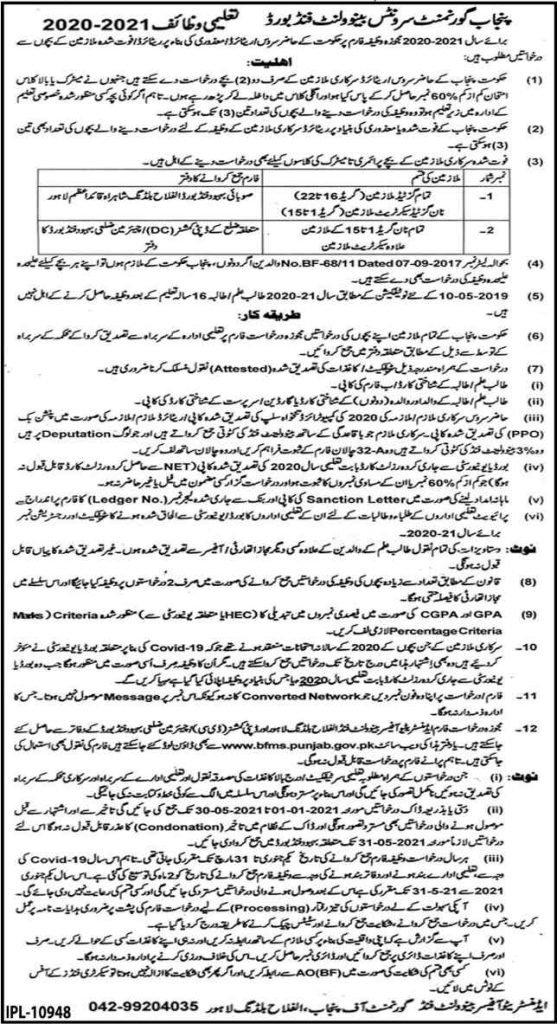 پنجاب گورنمنٹ سرونٹس بینوولنٹ فنڈ بورڈ تعلیمی وظائف 2020-2021
برائے سال 2021-2020 مجوزہ وظیفہ فارم پر حکومت کے حاضر سروس/ریٹائرڈ/معذوری کی بناء پر ریٹائرڈ/فوت شدہ ملازمین کے بچوں سے
درخواستیں مطلوب ہیں۔
اہلیت:
(1) حکومت پنجاب کے حاضر سروس/ریٹائرڈ سرکاری ملازمین کے صرف دو (2) بچے درخواست دے سکتے ہیں جنہوں نے میٹرک یا بالا کلاس
امتحان کم از کم 60% نمبر حاصل کر کے پاس کیا ہو اور اگلی کلاس میں داخلہ لے کر پڑھ رہے ہوں۔ تاہم اگر کوئی بچہ کسی منظور شدہ خصوصی تعلیم
کے ادارہ میں زیر تعلیم ہو تو وظیفہ کی درخواست دینے والے بچوں کی تعداد تین (3) تک ہو سکتی ہے۔
(2) حکومت پنجاب کے فوت شدہ یا معذوری کی بنیاد پر ریٹائرڈ سرکاری ملازمین کے وظیفہ کے لئے درخواست دینے والے بچوں کی تعداد بھی تین
(3) ہو سکتی ہے۔
(3) فوت شدہ سرکاری ملازمین کے بچے پرائمری تا میٹرک کی کلاسوں کیلئے بھی درخواست دینے کے اہل ہیں۔
نمبر شمار ملازمین کی قسم فارم جمع کروانے کا دفتر
1- تمام گزٹیڈ ملازمین (گریڈ 16 تا 22) صوبائی بہبود فنڈ بورڈ الفلاح بلڈنگ شاہراہ قائد اعظم لاہور
نان گزٹیڈ سیکرٹریٹ ملازمین (گریڈ 1 تا 15)
2- تمام نان گریڈ 1 تا 15 کے ملازمین متعلقہ ضلع کے ڈپٹی کمشنر (DC)/چیئرمین ضلعی بہبود فنڈ بورڈ کا
علاوہ سیکرٹریٹ ملازمین دفتر
(4) بحوالہ لیٹر نمبر No.BF-68/11 Dated 07-09-2017 والدین اگر دونوں، پنجاب حکومت کے ملازم ہوں تو اپنے ہر بچے کیلئے علیحدہ
علیحدہ وظیفہ کی درخواست بھی دے سکتے ہیں۔
(5) 10-05-2019 کے نئے نوٹیفکیشن کے مطابق سال 2020-21 طالب علم/طالبہ 16 سالہ تعلیم کے بعد وظیفہ حاصل کرنے کے اہل نہیں
طریقہ کار:
(6) حکومت پنجاب کے تمام ملازمین اپنے بچوں کی درخواستیں مجوزہ وظیفہ فارم پر تعلیمی ادارہ کے سربراہ سے تصدیق کروا کے محکمہ کے سربراہ
کے توسط سے ذیل کے مطابق متعلقہ دفتر میں جمع کروائیں۔
(7) درخواست کے ہمراہ مندرجہ ذیل سرٹیفکیٹ/کاغذات کی تصدیق شدہ (Attested) نقول منسلک کرنا ضروری ہیں۔
(i) طالب علم/طالبہ کے شناختی کارڈ/ب فارم کی کاپی۔
(ii) طالب علم کے والد اور والدہ (دونوں) کے شناختی کارڈ یا گارڈین/سرپرست کے شناختی کارڈ کی کاپی۔
(iii) حاضر سروس سرکاری ملازم/ملازمہ کی 2020 کی کمپیوٹرائزڈ تنخواہ سلپ کی تصدیق شدہ کاپی/ریٹائرڈ ملازم/ملازمہ کی صورت میں پنشن بک
(PPO) کی تصدیق شدہ کاپی سرکاری ملازم جو باقاعدگی کے ساتھ بینوولنٹ فنڈ کی کٹوتی جمع کرواتے ہیں اور جو لوگ Deputation پر ہیں
وہ 3% بینوولنٹ فنڈ کی کٹوتی جمع کرواتے ہیں وہ 32-A چالان فارم کے ثبوت فراہم کریں اور وہ چالان ساتھ لف کریں۔
(iv) بورڈ یا یونیورسٹی سے جاری کردہ رزلٹ کارڈ بابت تعلیمی سال 2020 کی تصدیق شدہ کاپی (NET سے حاصل کردہ رزلٹ کارڈ قابل قبول نہ
ہوگا) جو کم از کم 60% نمبر یا ان کے مساوی نمبروں کا ثبوت ہو اور درخواست گزار کسی مضمون میں فیل یا غیر حاضر نہ ہو۔
(v) ماہانہ امداد لینے کی صورت میں Sanction Letter کی کاپی اور بنک سے جاری شدہ لیجر نمبر (Ledger No.) کا فارم پر اندراج ہے
(vi) پرائیویٹ تعلیمی اداروں کے طلباء و طالبات کے لئے ان کے تعلیمی اداروں کا بورڈ/یونیورسٹی سے الحاق شدہ ہونے کا سرٹیفکیٹ اور رجسٹریشن نمبر
برائے سال 2020-21۔
نوٹ: دستاویزات کی تمام نقول طالب علم کے والدین کے علاوہ کسی دیگر مجاز اتھارٹی/آفیسر سے تصدیق شدہ ہوں۔ غیر تصدیق شدہ کاپیاں قابل
قبول نہ ہونگی۔
(8) قانون کے مطابق تعداد سے زیادہ بچوں کی وظیفہ کی درخواستیں جمع کروانے کی صورت میں صرف 2 درخواستوں پر وظیفہ کیا جائیگا اور اس سلسلے میں
مجاز اتھارٹی کا فیصلہ حتمی ہوگا۔
(9) GPA اور CGPA کی صورت میں فیصدی نمبروں میں تبدیلی کا (HEC یا متعلقہ یونیورسٹی سے) منظور شدہ Marks) Criteria
Percentage Criteria) لازمی لف کریں۔
10- سرکاری ملازمین کے جن بچوں کے 2020 کے سالانہ امتحانات منعقد نہ ہوئے تھے جو کہ Covid-19 کی بناء پر متعلقہ بورڈ یا یونیورسٹی نے مؤخر
کر دیے ہیں وہ بھی اشتہار ہذا میں درج تاریخ تک درخواستیں جمع کروا سکتے ہیں۔ مگر ان کا وظیفہ صرف اسی صورت میں منظور ہوگا جب وہ بورڈ یا
یونیورسٹی سے جاری کردہ رزلٹ کارڈ بابت تعلیمی سال 2020 مہیا جس کی بنیاد پر متعلقہ وظیفہ کا اہل پایا گیا ہے مہیا کریں گے۔
11- فارم/درخواست پر اپنا وہ فون نمبر دیں جو Converted Network کا نہ ہو کیونکہ اس نمبر پر Message موصول نہیں ہوتا۔ جس کا
ادارہ ذمہ دار نہ ہوگا۔
12- مجوزہ فارم ایڈمنسٹریٹو آفیسر بینوولنٹ فنڈ الفلاح بلڈنگ لاہور اور ڈپٹی کمشنر (ڈی سی)/چیئرمین ضلعی بہبود فنڈ بورڈ کے دفاتر سے حاصل کئے
جا سکتے ہیں۔ یا دفتر ہذا کی ویب سائٹ www.bfms.punjab.gov.pk سے بھی ڈاؤن لوڈ کئے جا سکتے ہیں فارم کی نقول بھی استعمال کی
جا سکتی ہیں۔ تاہم پرانے فارم پر درخواست قبول نہ ہوگی۔
نوٹ: (i) جن درخواستوں کے ہمراہ مطلوبہ تعلیمی سرٹیفکیٹ اور درج بالا کاغذات کی مصدقہ نقول اور تعلیمی ادارے کے سربراہ اور سرکاری محکمہ کے سربراہ
کی تصدیق نہیں ہونگی نامکمل تصور کی جائیں گی اور اس بناء پر مسترد ہونگی اور اس سلسلے میں الگ سے کوئی خط و کتابت نہ کی جائیگی۔
(ii) دستی یا بذریعہ ڈاک درخواستیں مورخہ 01-01-2021 تا 30-05-2021 تک جمع کی جائیں گی تاخیر سے اور اشتہار سے قبل
موصول ہونے والی درخواستیں بھی مسترد تصور ہونگی اور ڈاک کے نظام میں تاخیر (Condonation) کا عذر قابل قبول نہ ہوگا اس لئے
درخواستیں لازماً مورخہ 31-05-2021 تک متعلقہ بہبود فنڈ بورڈ میں جمع کروا دی جائیں۔
(iii) ہر سال درخواست وظیفہ فارم جمع کروانے کی تاریخ یکم جنوری تا 31 مارچ تک مقرر کی جاتی تھی۔ تاہم اس سال Covid-19 کی
وجہ سے، تعلیمی ادارے بند ہونے اور دفاتر بند ہونے کی وجہ سے وظیفہ فارم جمع کروانے کی تاریخ کو 2 ماہ کی توسیع کی گئی ہے۔ جو اس سال یکم جنوری
2021 سے 31-5-21 تک مقرر کی گئی ہے اس کے بعد موصول ہونے والی درخواستیں مسترد کی جائیں گی اور کسی قسم کی رعایت نہیں دی جائے گی۔
(iv) آپ کی سہولت کے لئے درخواستوں کی تیز رفتار (Processing) کے لیے درخواست فارم کی پشت پر ضروری ہدایات نامہ پر عمل
کریں۔ جس میں درخواست جمع کروانے، شکایت جمع کروانے اور سٹیٹس چیک کرنے کا طریقہ درج کر دیا گیا ہے۔
(v) آپ سے گزارش ہے کہ اپنی واقفیت کی بناء پر کسی ملازم کے ساتھ رابطہ نہ کریں اور نہ ہی اپنے کاغذات کسی کے حوالے کریں۔ صرف
اور صرف اپنے کاغذات ڈائری پر جمع کروائیں اور ڈائری نمبر حاصل کریں۔ اس کی خلاف ورزی کرنے پر ادارہ ذمہ دار نہ ہوگا۔
(vi) کسی بھی قسم کی شکایت کی صورت میں AO(BF) سے رابطہ کریں اور اگر پھر بھی شکایت کا ازالہ نہیں ہوتا تو سیکرٹری فنڈز کے آفس
کے نوٹس میں لائیں۔
ایڈمنسٹریٹو آفیسر بینوولنٹ فنڈ گورنمنٹ آف پنجاب، الفلاح بلڈنگ لاہور 042-99204035
IPL-10948